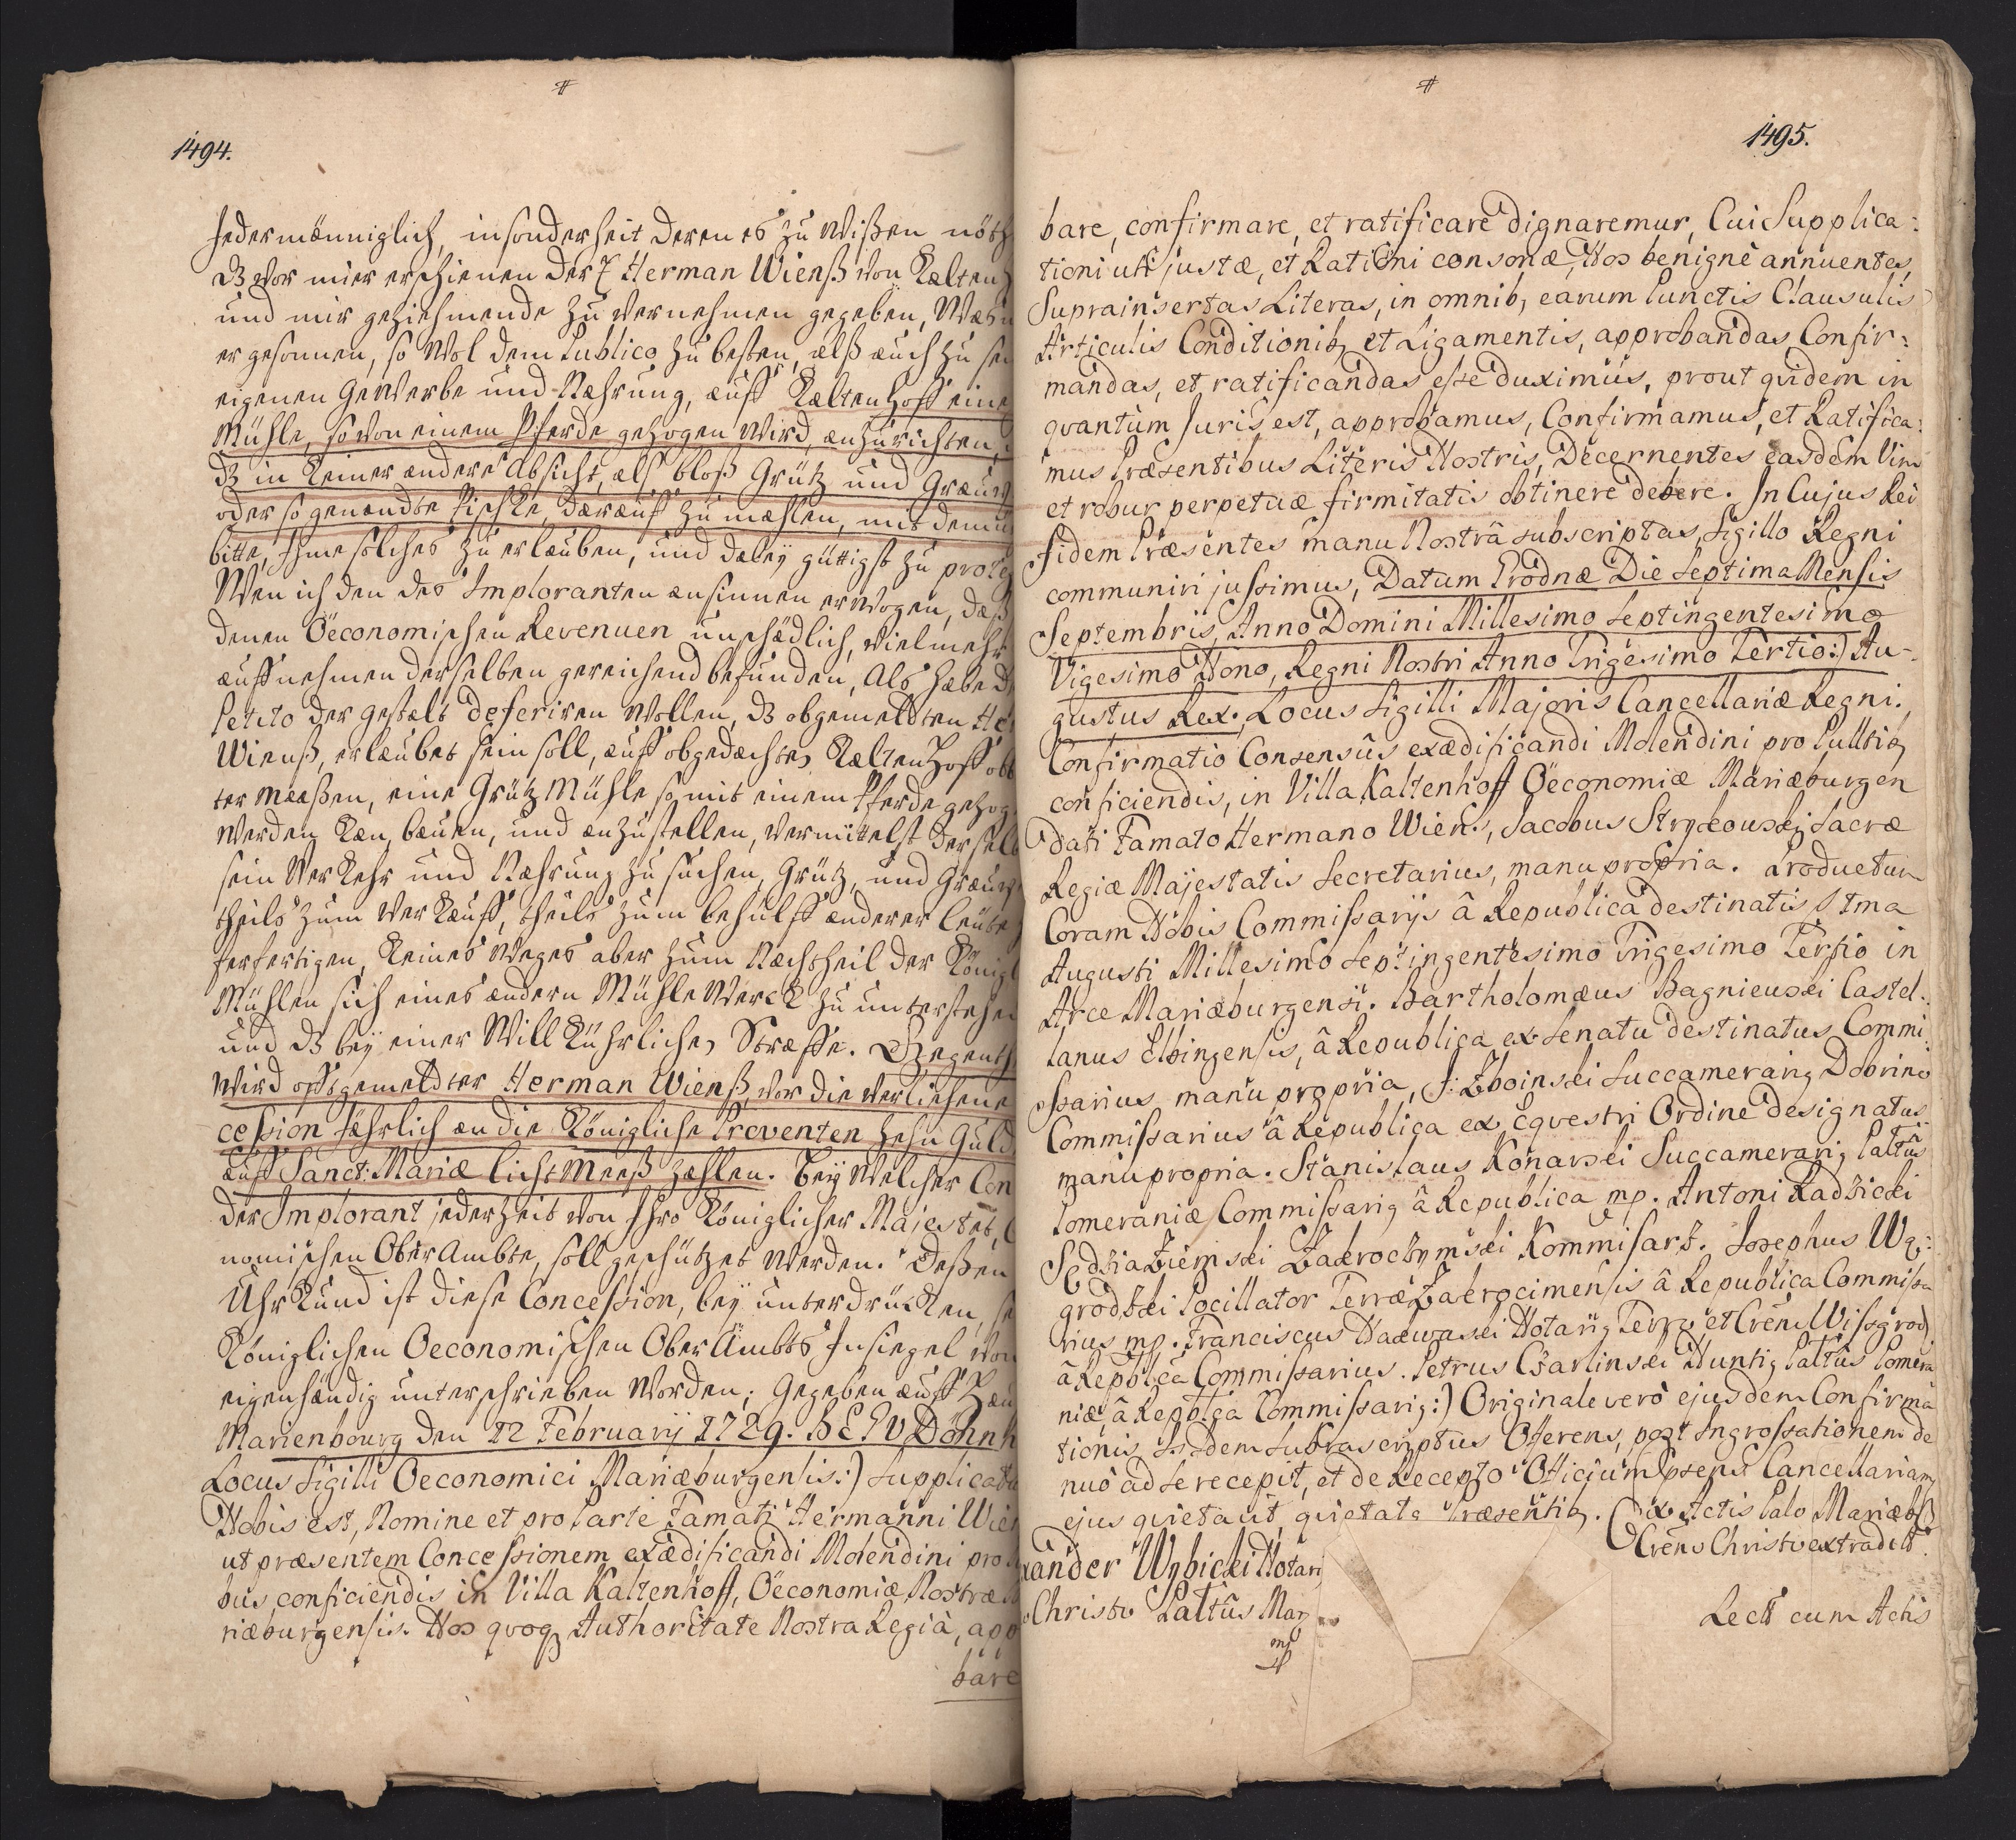 1494.
Jedermänniglich, insonderheit denen es zu Wißen nöth
dz vor mier erschienen der E Herman Wienß von Kaltenh
und mir geziehmende zu vernehmen gegeben, Waß
er gesonnen, so Wol dem Publico zu besten, alß auch zu sei
eigenen Gewerbe und Nahrung, auff Kaltenhoff eine
Mühle, so von einem Pferde gezogen Wird, anzurichten,
dz in Keiner andere Absicht, als bloß Grütz und Graup
oder so genandte Pischke, darauf zu mahlen, mit demü
bitte, Ihme solches zu erlauben, und dabeÿ gütigst zu proteg
Wen ich den des Imploranten ansinnen erwogen, daß
denen Öeconomischen Revenuen unschädlich, vielmehr
auffnehmen derselben gereichend befunden, Als habe d
Petito der gestalt deferiren Wollen, dz obgemeldten Her
Wienß, erlaubet sein soll, auff obgedachten Kaltenhoff obb
ter Maaßen, eine Grütz Mühle so mit einem Pferde gezog
Werden Kan, bauen, und anzustellen, vermittelst dersel
sein Verkehr und Nahrung zu suchen, Grütz, und Graup
theils zum verkauff, theils zum behülff anderer leüte
ferfertigen, Keines Weges aber zum Nachtheil der Königl
Mühlen sich eines andern Mühle Werck zu unterstehe
und dz beÿ einer Willkührlichen Straffe. Dagegen
Wird offtgemeldter Herman Wienß, vor die verliehene
cession Jährlich an die Königliche Proventen Zehn Guld
auff Sanct: Mariæ lichtMeeß zahlen. Beÿ Welcher Con
der Implorant jederzeit von Ihro Königlicher Majestet,
nomischen Ober Ambte, soll geschützet Werden. Deßen
Uhrkund ist diese Concession, beÿ unterdrükken,
Königlichen Oeconomischen Ober Ambts Insiegel von
eigenhändig unterschrieben Worden; Gegeben auff
Marienbourg den 12 Februarij 1729. B E G V Döhnh
Locus Sigilli Oeconomici Mariæburgensis:) Supplicatu
Nobis est, Nomine et pro Parte Famati Hermanni Wien
ut præsentem Concessionem exædificandi Molendini pro
bus conficiendis in Villa Kaltenhoff, Oeconomiæ Nostræ
riæburgensis. Nos quoqz Authoritate Nostra Regià, app
bare
1495.
bare, confirmare, et ratificare dignaremur, Cui Supplica:
tioni uti justæ, et Rationi consonæ, Nos benignè annuentes,
Suprainsertas Literas, in omnib, earum Punctis Clausulis
Articulis Conditionib, et Ligamentis, approbandas Confir:
mandas, et ratificandas esse duximus, prout quidem in
quantum Juris est, approbamus, Confirmamus, et Ratifica:
mus Præsentibus Literis Nostris, Decernentes easdem Vim
et robur perpetuæ firmitatis obtinere debere. In Cujus Rei
fidem Præsentes manu Nostrâ subscriptas, Sigillo Regni
communiri jussimus, Datum Grodnæ Die Septima Mensis
Septembris, Anno Domini Millesimo Septingentesimo
Vigesimo Nono, Regni Nostri Anno Trigesimo Tertio:) Au-
gustus Rex., Locus Sigilli Majoris Cancellariæ Regni.
Confirmatio Consensûs exædificandi Molendini pro Pultib,
conficiendis, in Villa Kaltenhoff Oeconomiæ Mariæburgen
dati Famato Hermano Wiens, Jacobus Strykowski Sacræ
Regiæ Majestatis Secretarius, manu propria. Producetum
Coram Nobis Commissarijs â Republica destinatis 1tma
Augusti Millesimo Septingentesimo Trigesimo Tertio in
Arce Mariæburgensi. Bartholomæus Bagniewski Castel:
lanus Elbingensis, â Republica ex Senatu destinatus Commi
ssarius manu propria, J: Zboinski Succamerariq Dobrinq
Commissarius â Republica ex Equestri Ordine designatus
manu propria. Stanislaus Konarski Succamerariq Paltûs
Pomeraniæ Commissariq â Republica mp. Antoni Radzicki
Sędzia Ziemski Zakroczymski Kommisarz. Josephus Wy:
grodzki Pocillator Terræ Zakrocimensis â Republica Commissa
rius mp. Franciscus Nakwaski Notariq Terrs et Crens Wissgrod
â Repblca Commissarius. Petrus Czarlinski Nuntiq Paltûs Pomera
niæ, â Repblca Commissariq:) Originale verò ejusdem Confirma
tionis Isdem Subrascriptus Offerens, post Ingrossationem de
nuò ad se recepit, et de Recepto Officium Psens Cancellariamq
ejus quietavit, quietatq Præsentib. Ex Actis Palo Mariæb
Crens Christb extradit
xander Wybicki Notari
Christb Paltûs Mar
mp
Lect cum Actis